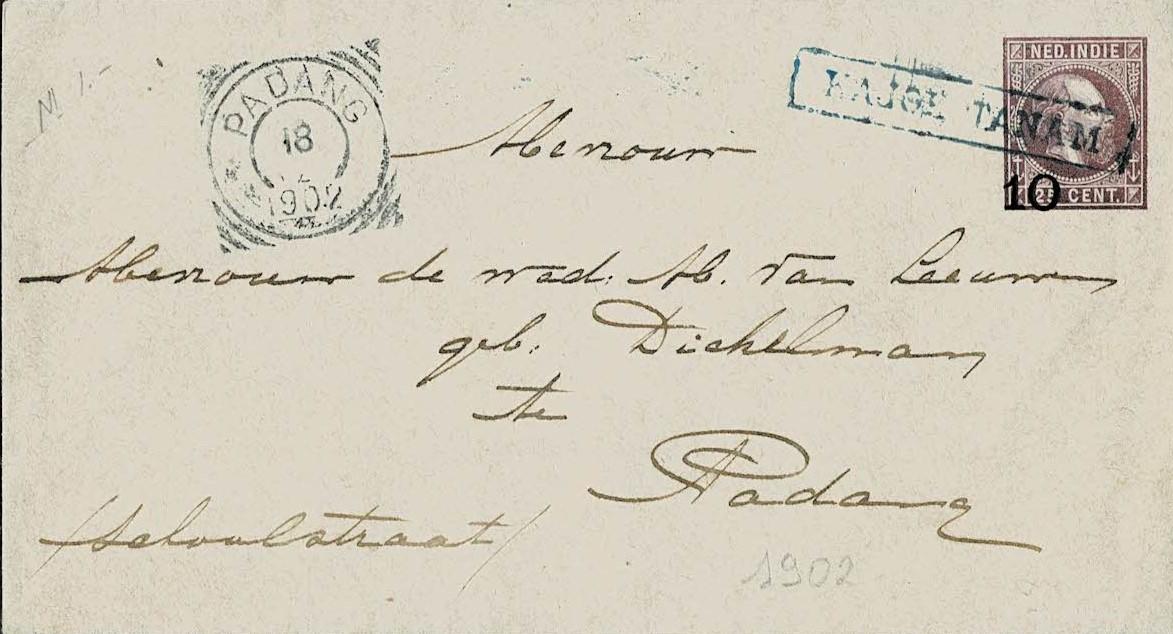 M 1.-
PADANG
18
12
1902
KAJOE TANAM
NED. INDIE
10
25 CENT.
Mevrouw
Mevrouw de wed: M. van Leeuwen
geb. Dickelman
te
Padang
/Schoolstraat/
1902